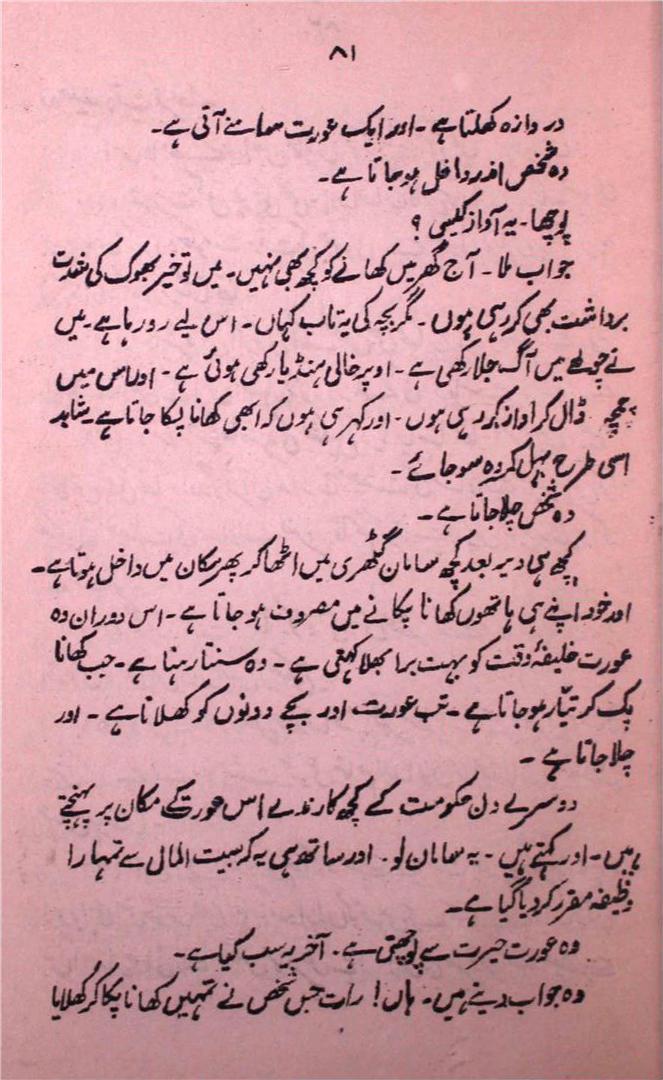 ۸۱
دروازہ کھلتا ہے ۔ اور ایک عورت سامنے آتی ہے ۔
وہ شخص اندر داخل ہو جاتا ہے ۔
پوچھا ۔ یہ آواز کیسی ؟
جواب ملا ۔ آج گھر میں کھانے کو کچھ بھی نہیں ۔ میں تو خیر بھوک کی شدت
برداشت بھی کر رہی ہوں ۔ مگر بچہ کی یہ تاب کہاں ۔ اس لیے رو رہا ہے ۔ میں
نے چولھے میں آگ جلا رکھی ہے ۔ اوپر خالی ہنڈیا رکھی ہوئی ہے ۔ اور اس میں
چمچہ ڈال کر آواز کر رہی ہوں ۔ اور کہہ رہی ہوں کہ ابھی کھانا پکا جاتا ہے ۔ شاید
اسی طرح بہل کر وہ سو جائے ۔
وہ شخص چلا جاتا ہے ۔
کچھ ہی دیر بعد کچھ سامان گٹھری میں اٹھا کر پھر مکان میں داخل ہوتا ہے ۔
اور خود اپنے ہی ہاتھوں کھانا پکانے میں مصروف ہو جاتا ہے ۔ اس دوران وہ
عورت خلیفۂ وقت کو بہت برا بھلا کہتی ہے ۔ وہ سنتا رہتا ہے ۔ جب کھانا
پک کر تیّار ہو جاتا ہے ۔ تب عورت اور بچے دونوں کو کھلاتا ہے ۔ اور
چلا جاتا ہے ۔
دوسرے دن حکومت کے کچھ کارندے اس عورت کے مکان پر پہنچتے
ہیں ۔ اور کہتے ہیں ۔ یہ سامان لو ۔ اور ساتھ ہی یہ کہ بیت المال سے تمہارا
وظیفہ مقرر کر دیا گیا ہے ۔
وہ عورت حیرت سے پوچھتی ہے ۔ آخر یہ سب کیا ہے ۔
وہ جواب دیتے ہیں ۔ ہاں ! رات جس شخص نے تمہیں کھانا پکا کر کھلایا